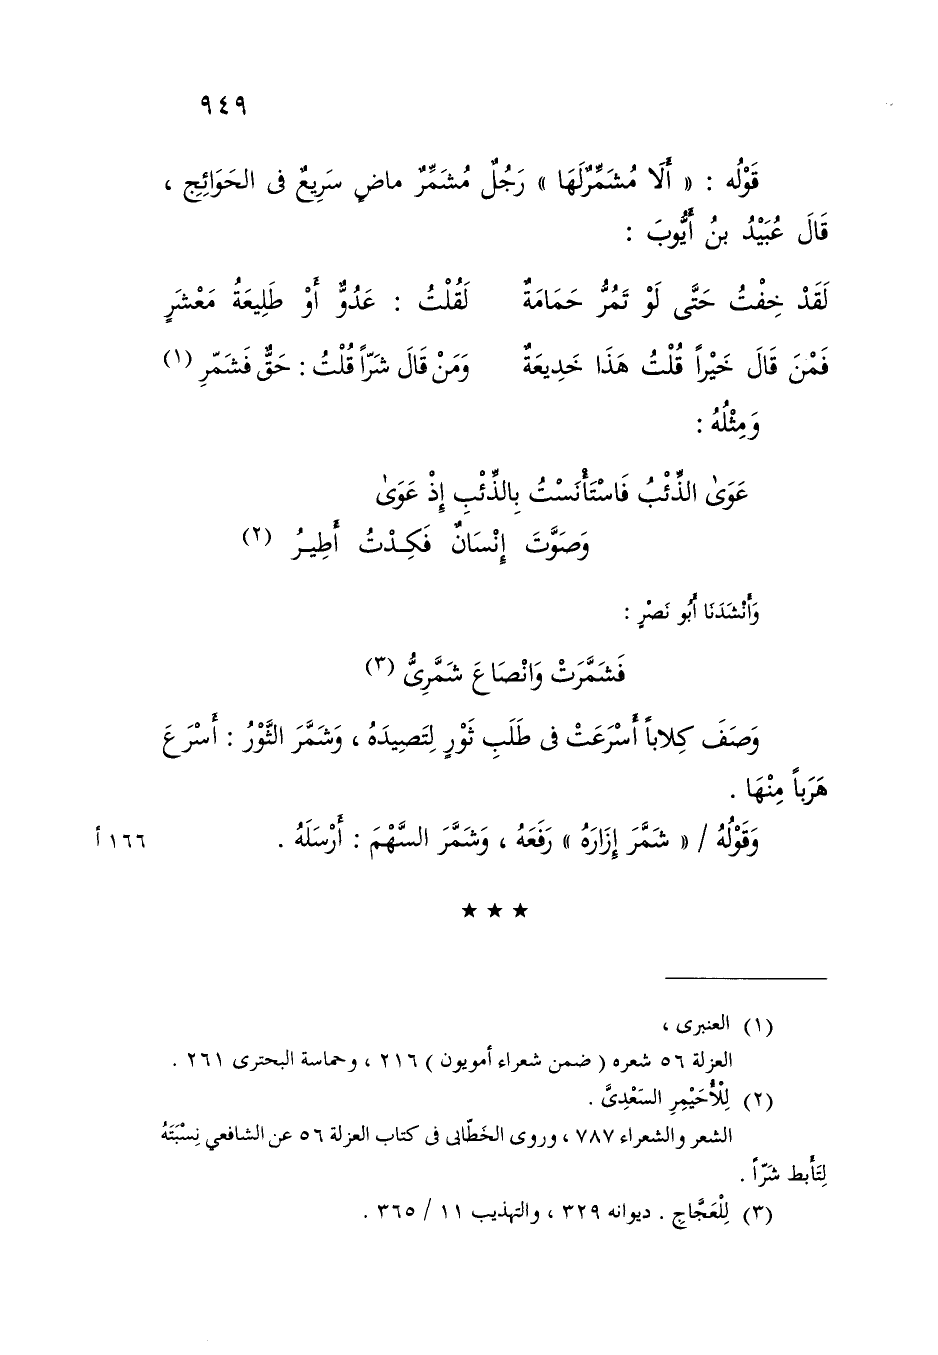 ٩٤٩
قَوْلُه : « أَلَا مُشَمِّرٌلَهَا » رَجُلٌ مُشَمِّرٌ ماضٍ سَرِيعٌ فى الحَوَائِجِ ،
قَالَ عُبَيْدُ بنُ أَيُّوبَ :
لَقَدْ خِفْتُ حَتَّى لَوْ تَمُرُّ حَمَامَةٌ لَقُلْتُ : عَدُوٌّ أَوْ طَلِيعَةُ مَعْشَرِ
فَمْنَ قَالَ خَيْراً قُلْتُ هَذَا خَدِيعَةٌ وَمَنْ قَالَ شَرّاً قُلْتُ : حَقٌّ فَشَمّرِ (١)
وَمِثْلُهُ :
عَوَىٰ الذِّئْبُ فَاسْتَأْنَسْتُ بِالذِّئْبِ إِذْ عَوَىٰ
وَصَوَّتَ إِنْسَانٌ فَكِدْتُ أَطِيرُ (٢)
وَأَنْشَدَنَا أَبُو نَصْرٍ :
فَشَمَّرَتْ وَانْصَاعَ شَمَّرِىُّ (٣)
وَصَفَ كِلاباً أَسْرَعَتْ فى طَلَبِ ثَوْرٍ لِتَصِيدَهُ ، وَشَمَّرَ الثَّوْرُ : أَسْرَعَ
هَرَباً مِنْهَا .
وَقَوْلُهُ / « شَمَّرَ إِزَارَهُ » رَفَعَهُ ، وَشَمَّرَ السَّهْمَ : أَرْسَلَهُ . ١٦٦ أ
★ ★ ★
(١) العنبرى ،
العزلة ٥٦ شعره ( ضمن شعراء أمويون ) ٢١٦ ، وحماسة البحترى ٢٦١ .
(٢) لِلْأُحَيْمِرِ السَعْدِىَّ .
الشعر والشعراء ٧٨٧ ، وروى الخَطّابى فى كتاب العزلة ٥٦ عن الشافعي نِسْبَتَهُ
لِتَأَبط شَرّاً .
(٣) لِلْعَجَّاجِ . ديوانه ٣٢٩ ، والتهذيب ١١ / ٣٦٥ .